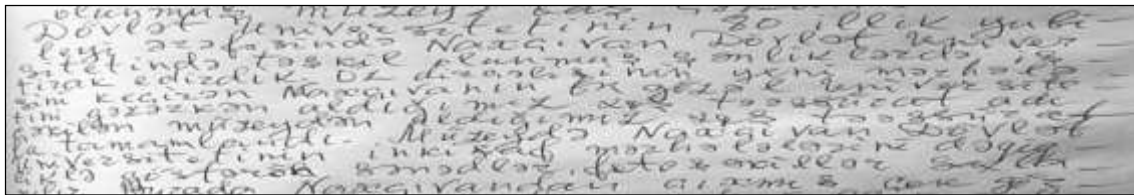 olunmuş muzeyə
Dövlət Universitetinin 80 illik yubi-
leyi ərəfəsində Naxçıvan Dövlət Univer-
sitetində təşkil olunmuş şənliklərdə iş-
tirak edirdik. Öz dirçəlişinin yeni mərhələ-
sini keçirən Naxçıvanın ən gözəl universite-
tini gəzərkən aldığımız xoş təəssürat
muzeydən aldığımız xoş təəssürat-
la tamamlandı. Muzeydə Naxçıvan Dövlət
Universitetinin inkişaf mərhələlərini dəqiq-
liklə göstərən sənədlər, fotoşəkillər
Burada Naxçıvandan çıxmış çox